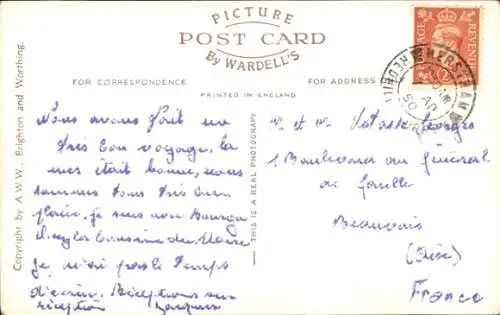 PICTURE
POST CARD
By WARDELL'S
FOR CORRESPONDENCE
FOR ADDRESS
PRINTED IN ENGLAND
Copyright by A.W.W., Brighton and Worthing.
THIS IS A REAL PHOTOGRAPHY
POSTAGE REVENUE
MERSTHAM
REDHILL
AP
50
Nous avons fait un
très bon voyage, la
mer était bonne, nous
sommes tous très bien
placés, je suis avec
la cousine du Maire
je n'ai pas le temps
d'écrire. Réceptions sur
réception Jacques
M et M Georges
1 Boulevard du Général
de Gaulle
Beauvais
(Oise)
France